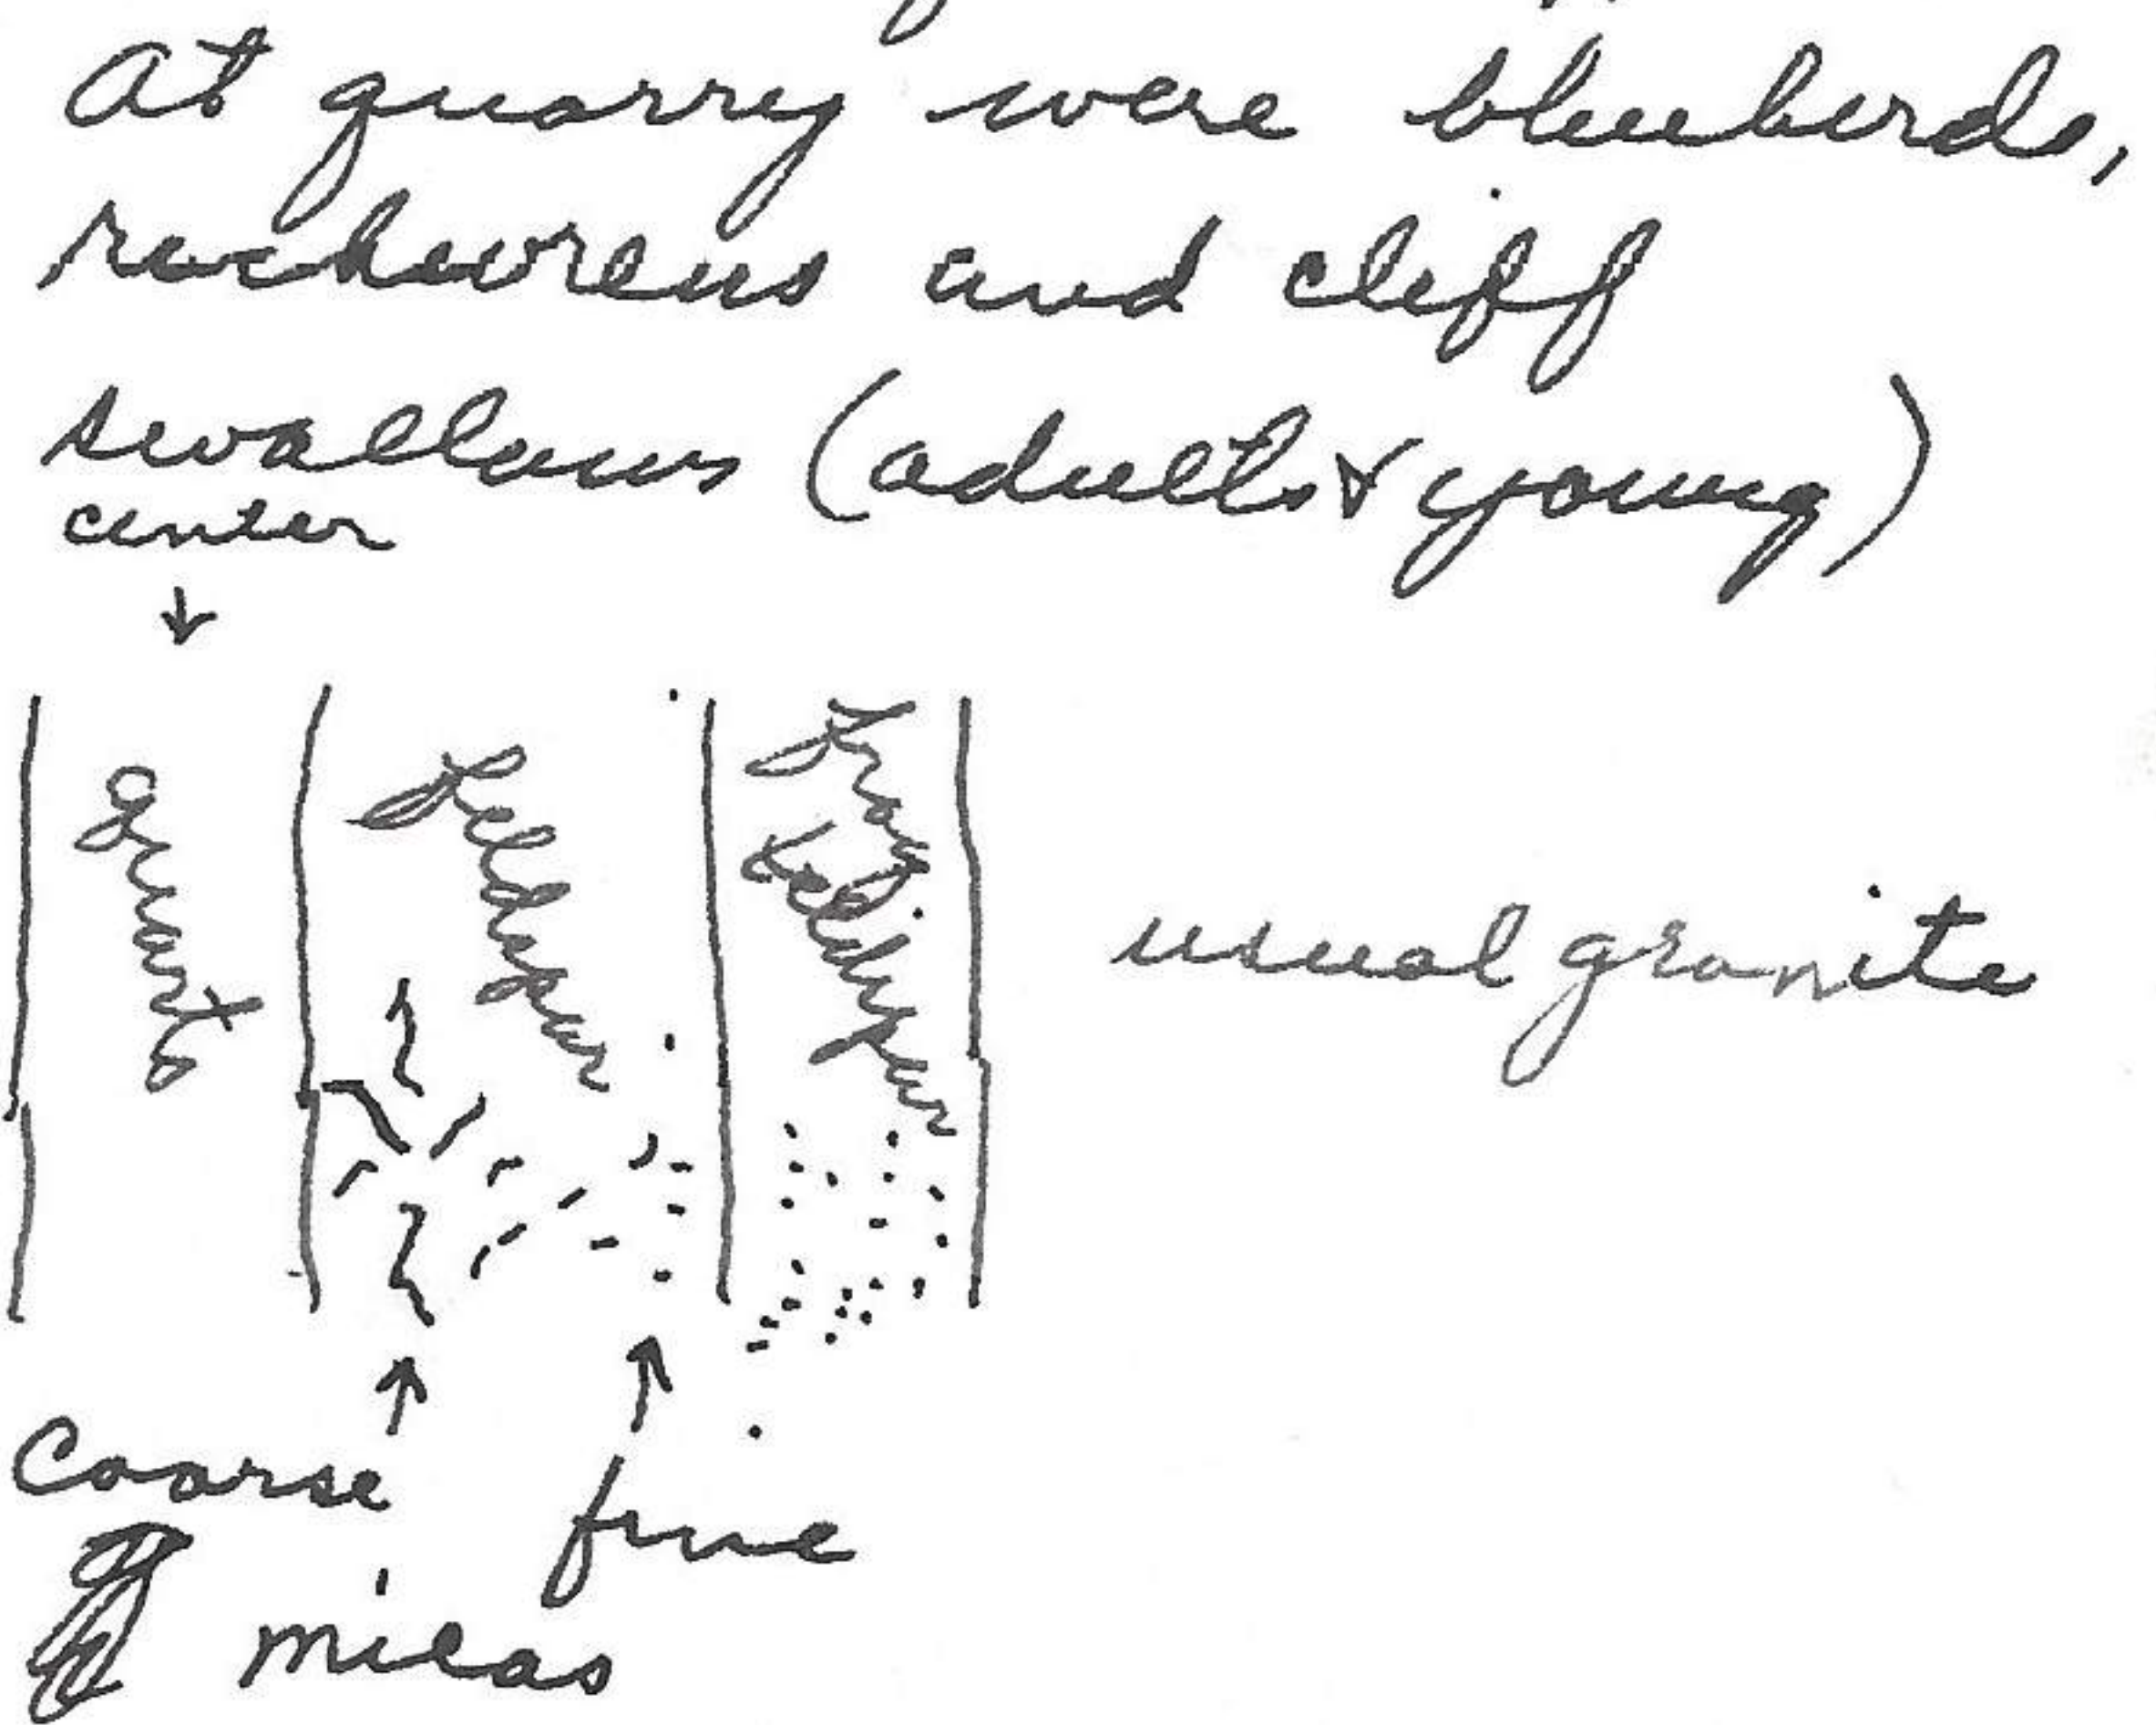 At quarry were bluebirds,
rockwrens and cliff
swallows (adults & young)
center
↓
quartz
feldspar
feldspar
usual granite
↑ ↑
Coarse fine
micas